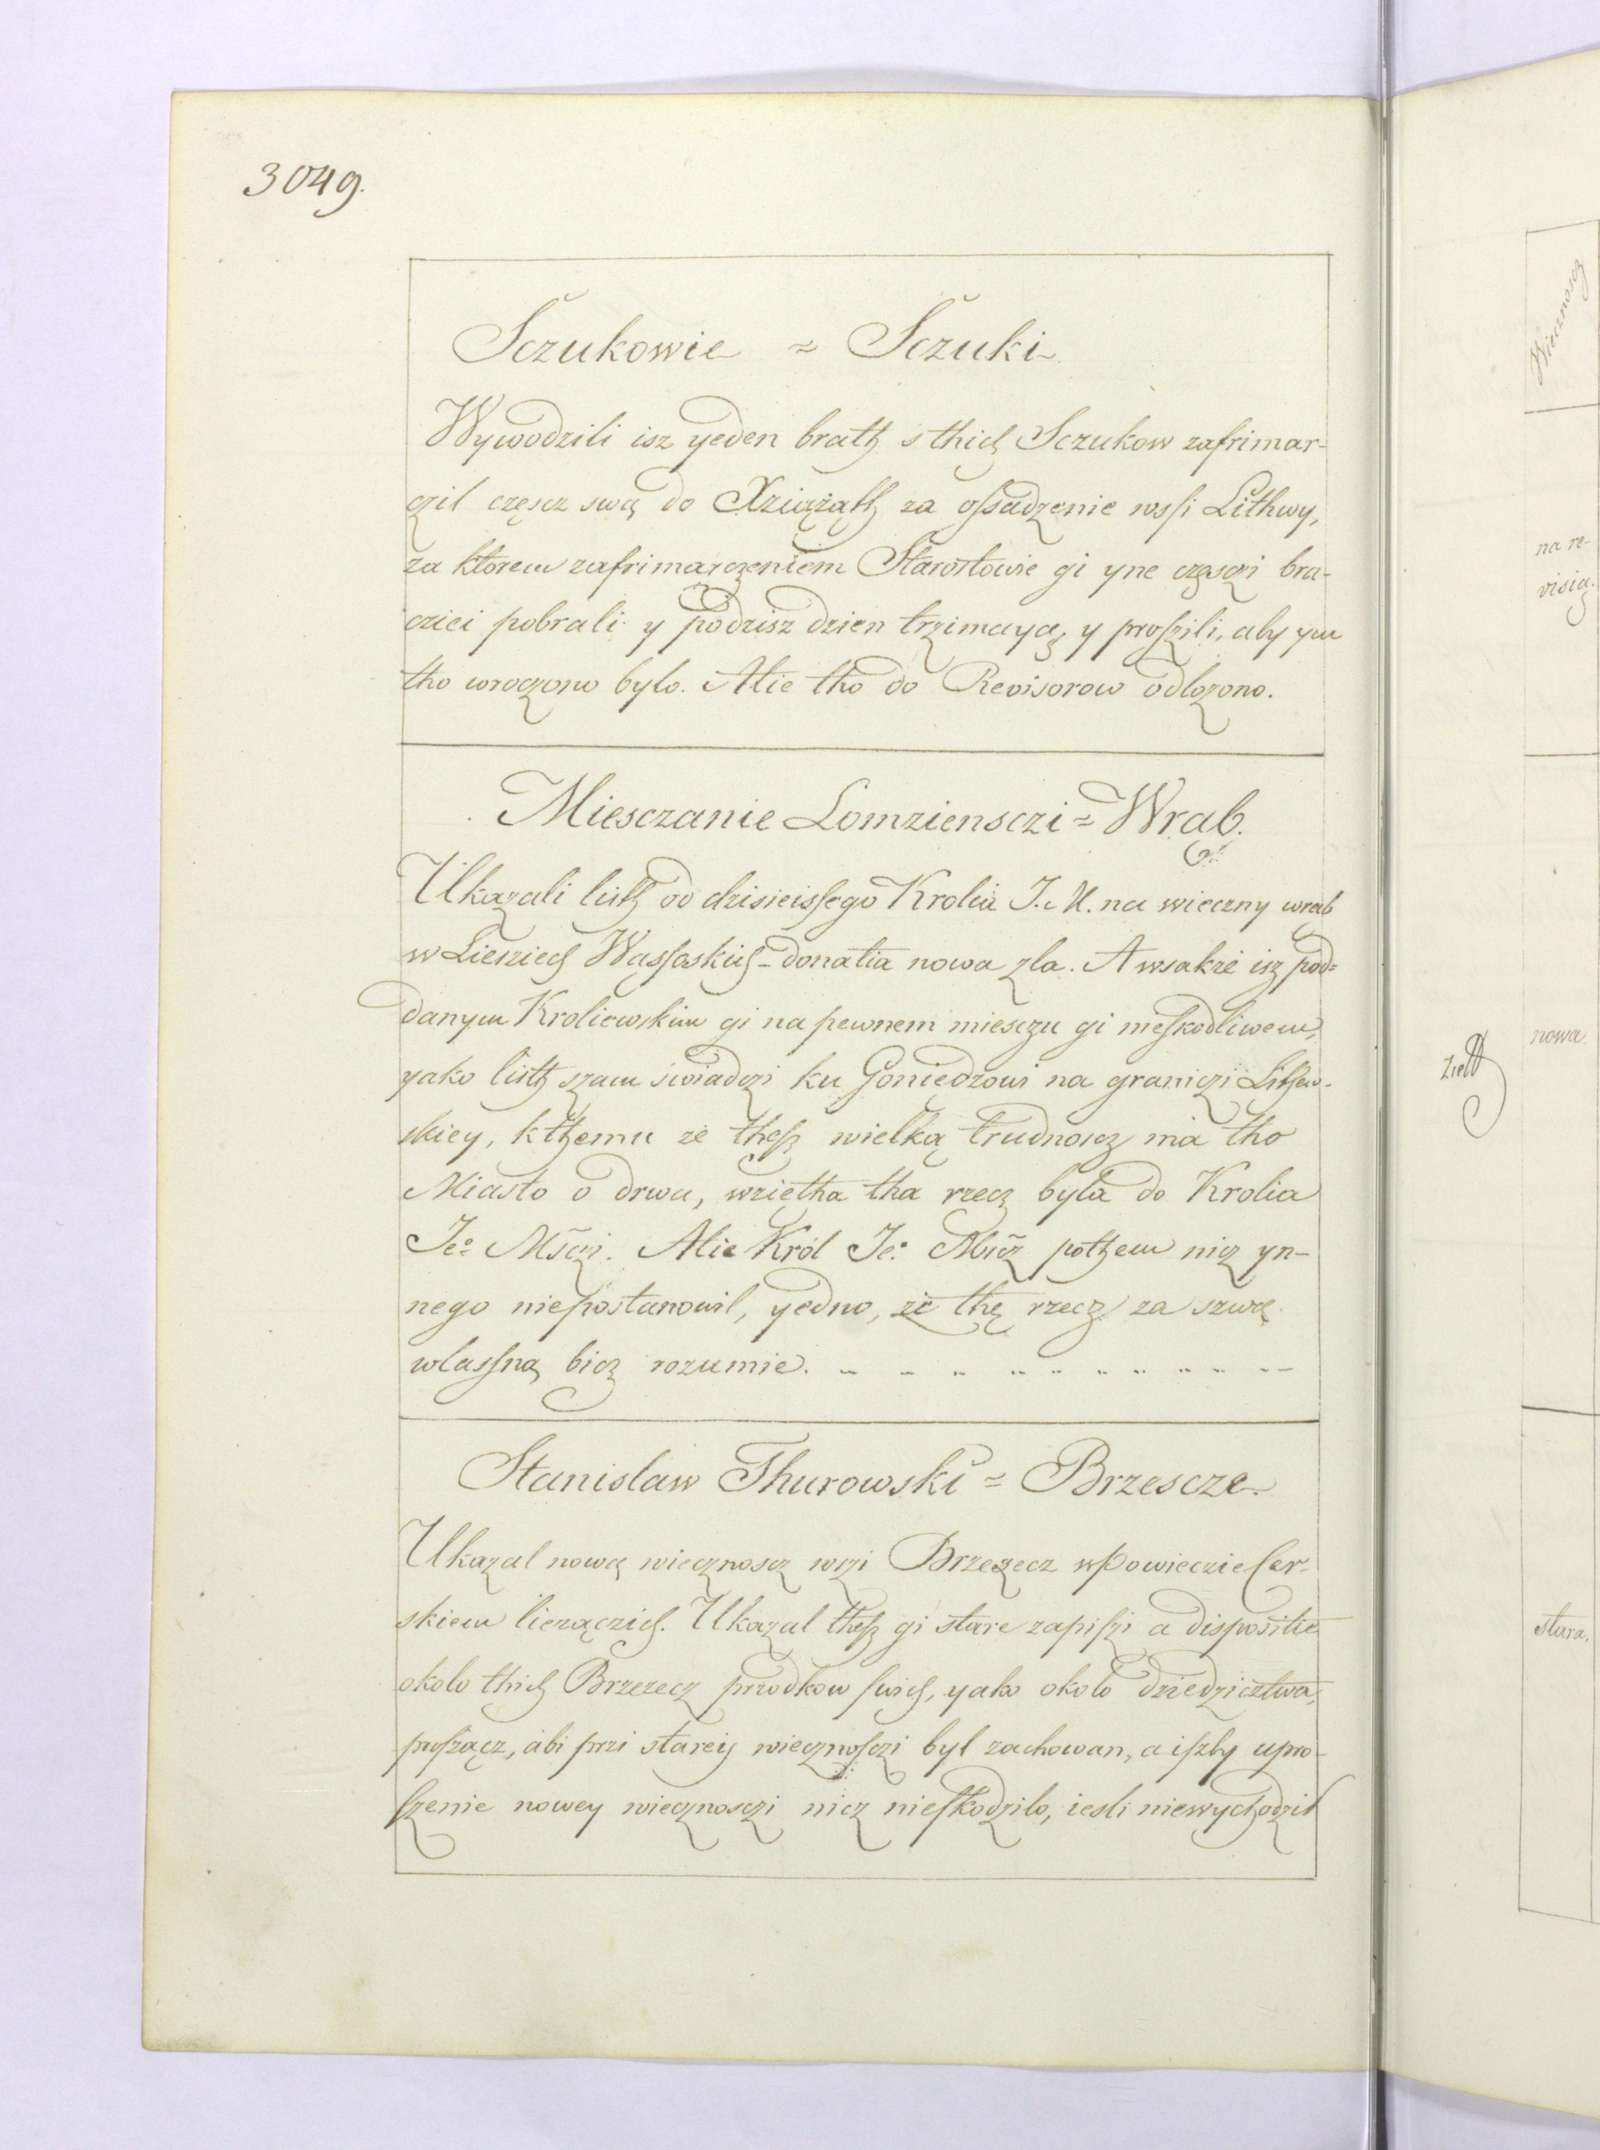 3049.
Sczukowie ~ Sczuki
Wywodzili isz yeden brath s thich Sczukow zafrimar-
czil częscz swą do Xziążąth za ossadzenie wssi Lithwy,
za ktorem zafrimarczeniem Starostowie gi yne częsczi bra-
cziei pobrali y podzisz dzien trzimaya, y proszili, aby ym
tho wroczono bylo. Alie tho do Revisorow odlozono.
Miesczanie Lomziensczi ~ Wrąb.
Ukazali listh od dzisieissego Krolia J. M. na wieczny wrąb
w Liesziech Wassoskich - donatia nowa zla. A wsakże isz pod=
danym Kroliewskim gi na pewnem miesczu gi nieskodliwem,
yako listh szam swiadczi ku Goniędzowi na graniczi Lithew-
skiey, k themu że thesz wielką trudnoscz ma tho
Miasto o drwa, wziętha tha rzecz była do Krolia
Jeo Mści. Alie Król Je: Mścz pothem nicz yn-
nego niepostanowil, yedno, że thę rzecz za szwę
wlassną bicz rozumie.
Stanislaw Thurowski ~ Brzescze.
Ukazal nową wiecznoscz wszi Brzezecz w Powieczie Cer-
skiem lieżączich. Ukazal thesz gi stare zapiszi a dispositie
okolo thich Brzezecz przodkow swich, yako okolo dziedzicztwa,
proszącz, abi przi starey wiecznosczi byl zachowan, a iszby upro-
szenie nowey wiecznosczi nicz nieskodzilo, iesli niewychodzil
Wiecznoscz
na re-
visią.
nowa.
stara.